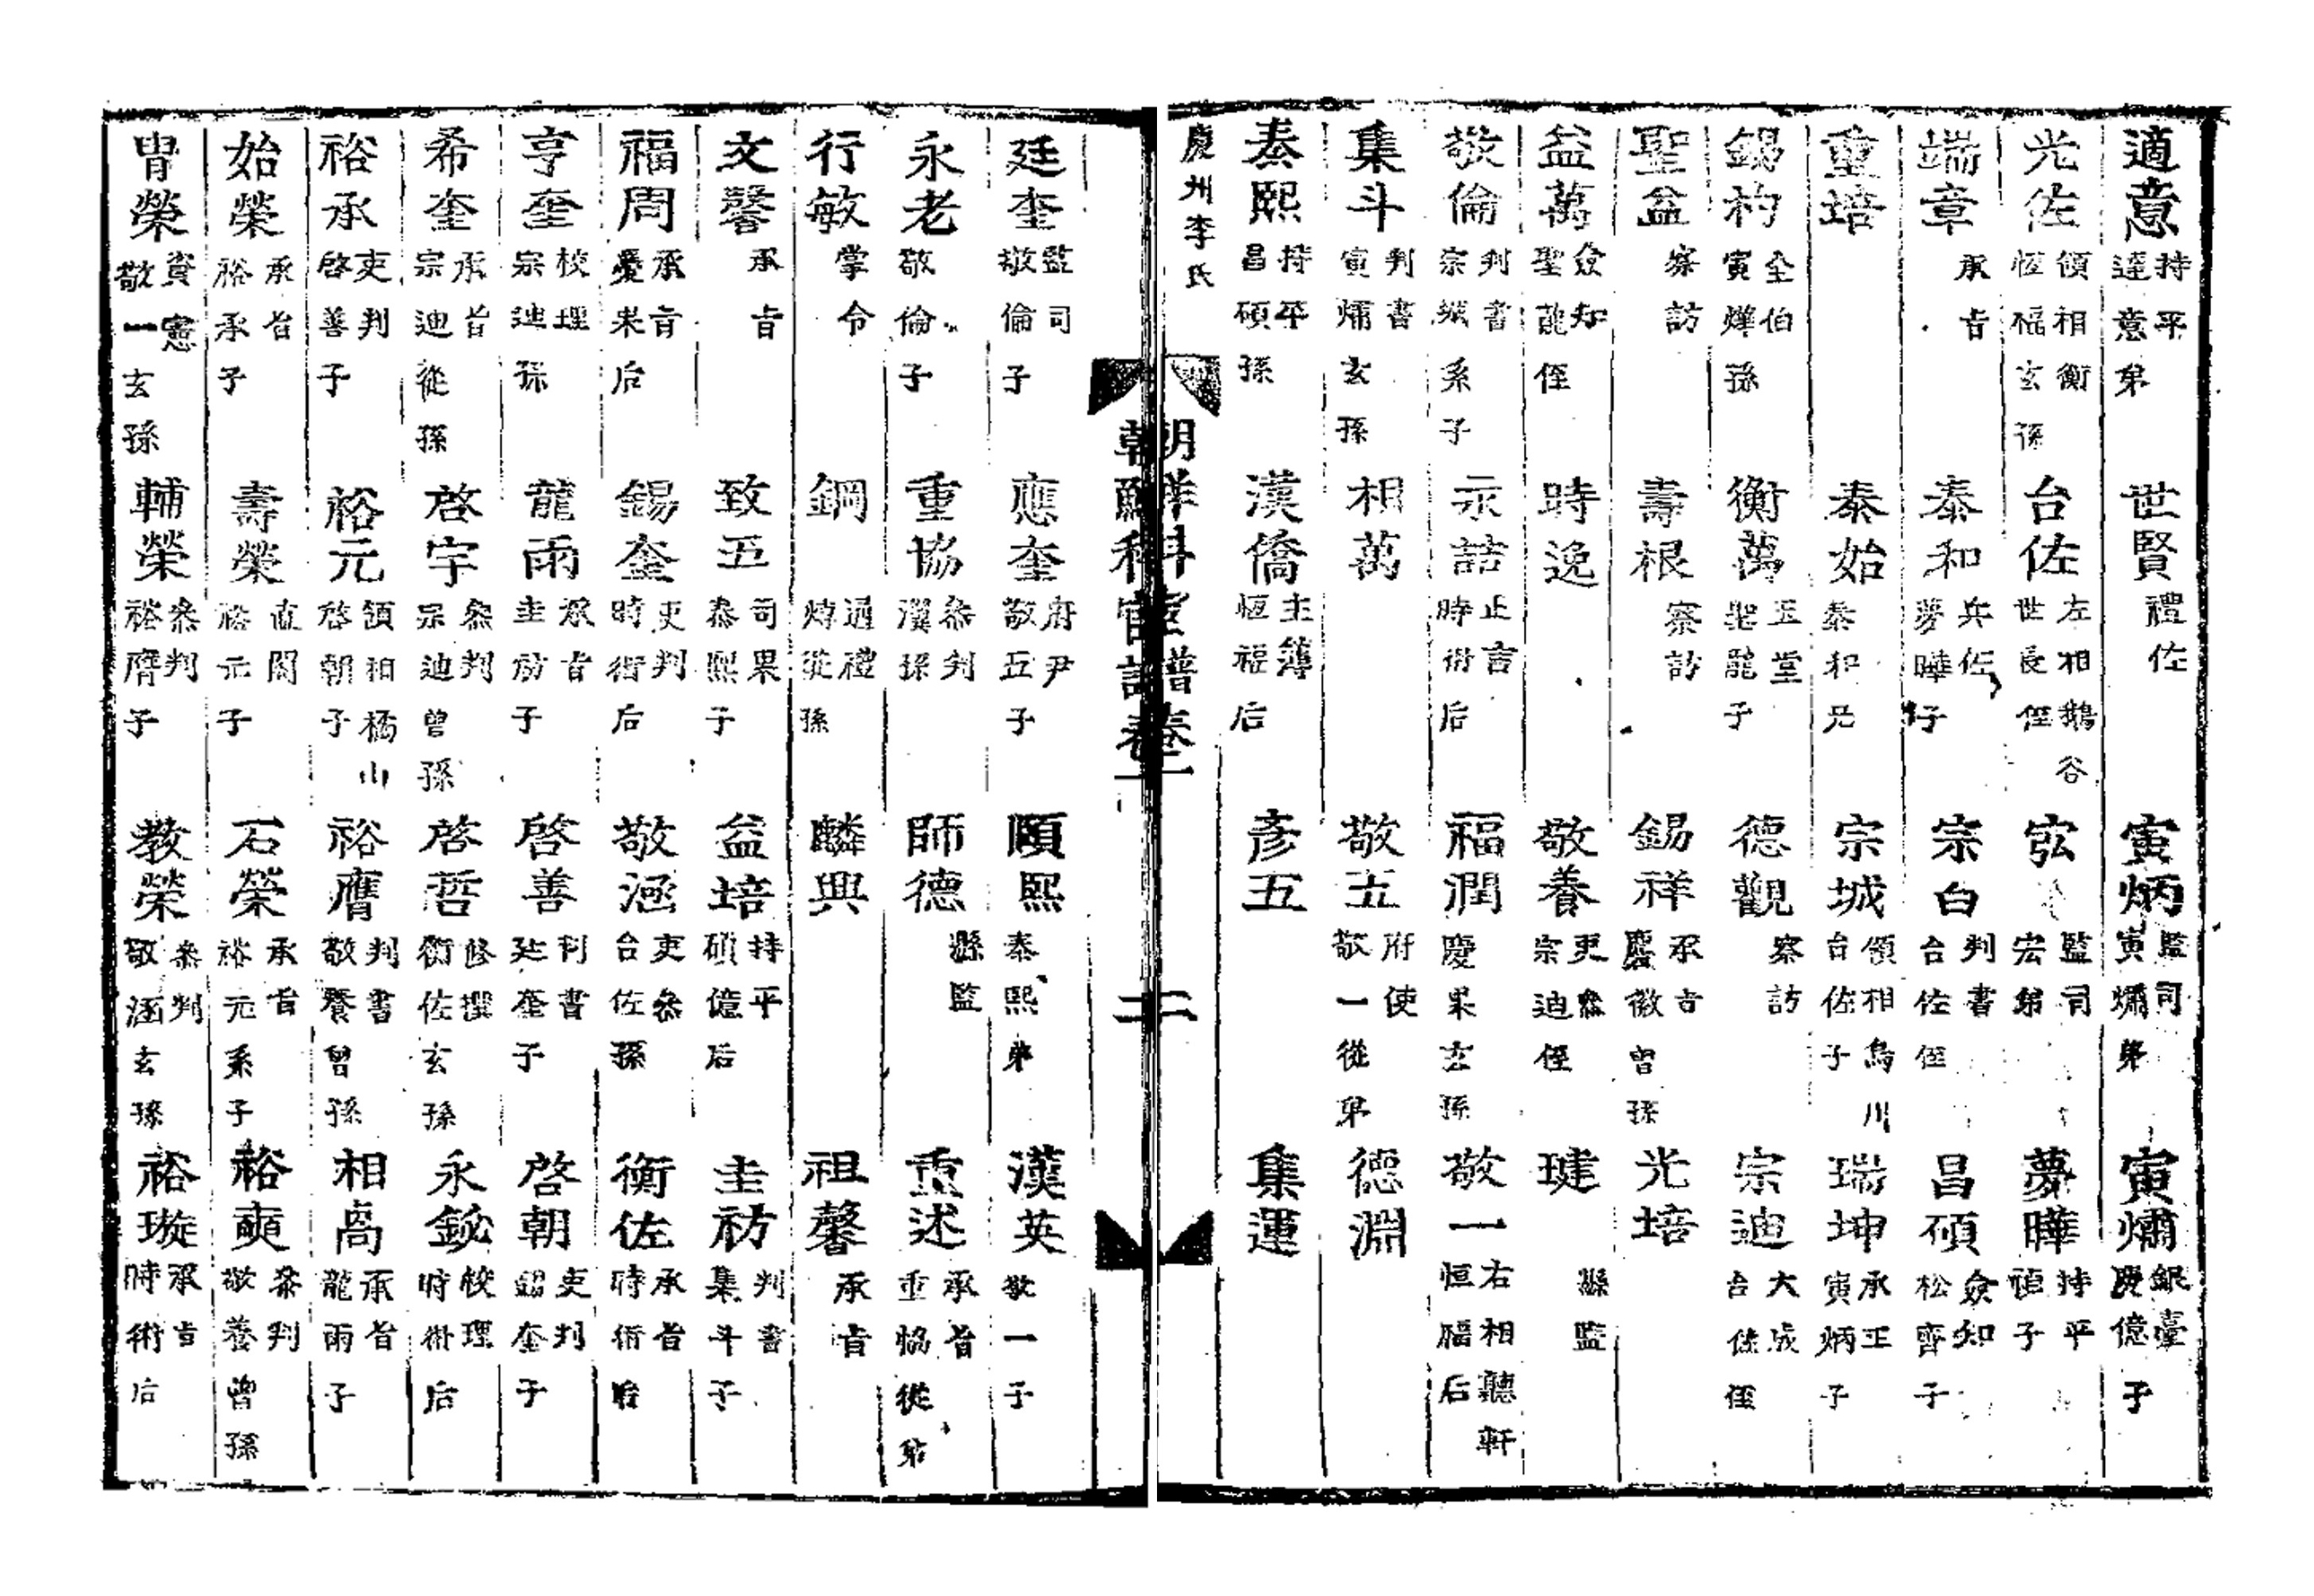 適意 持平 達意弟 世賢 禮佐 寅炳 監司 寅熽弟 寅熽 銀臺 慶億子
光佐 領相衡 恆福玄孫 台佐 左相鵝谷 世長侄 㢬 監司 宏弟 夢曄 持平 禎子
端章 承旨 泰和 兵佐 夢曄子 宗白 判書 台佐侄 昌碩 僉知 松齊子
重培 泰始 泰和兄 宗城 領相烏川 台佐子 瑞坤 承正 寅炳子
錫杓 全伯 寅燁孫 衡萬 玉堂 聖龍子 德觀 察訪 宗迪 大成 台佐侄
聖益 察訪 壽根 察訪 錫祥 承旨 慶徽曾孫 光培
益萬 僉知 聖龍侄 時逸 敬養 吏參 宗迪侄 瑅 縣監
敬倫 判書 宗城系子 永喆 正言 時術后 福潤 慶果玄孫 敬一 右相聽軒 恒福后
集斗 判書 寅熽玄孫 相萬 敬五 府使 敬一從弟 德淵
泰熙 持平 昌碩孫 漢僑 主簿 恆福后 彥五 集運
慶州李氏
朝鮮科宦譜卷一 二
廷奎 監司 敬倫子 應奎 府尹 敬五子 頤熙 泰熙弟 漢英 敬一子
永老 敬倫子 重協 參判 漢孫 師德 縣監 重述 承旨 重協從弟
行敏 掌令 鋼 通禮 㷜從孫 麟興 祖馨 承旨
文馨 承旨 致五 司果 泰熙子 益培 持平 碩億后 圭祊 判書 集斗子
福周 承旨 慶果后 錫奎 吏判 時術后 敬涵 吏參 台佐孫 衡佐 承旨 時術后
亨奎 校理 宗迪孫 龍雨 承旨 圭祊子 啓善 判書 廷奎子 啓朝 吏判 錫奎子
希奎 承旨 宗迪從孫 啓宇 參判 宗迪曾孫 啓哲 修撰 衡佐玄孫 永鈗 校理 時術后
裕承 吏判 啓善子 裕元 領相橘山 啓朝子 裕膺 判書 敬養曾孫 相卨 承旨 龍雨子
始榮 承旨 裕承子 壽榮 直閣 裕元子 石榮 承旨 裕元系子 裕奭 參判 敬養曾孫
胄榮 資憲 敬一玄孫 輔榮 參判 裕膺子 教榮 參判 敬涵玄孫 裕璇 承旨 時術后